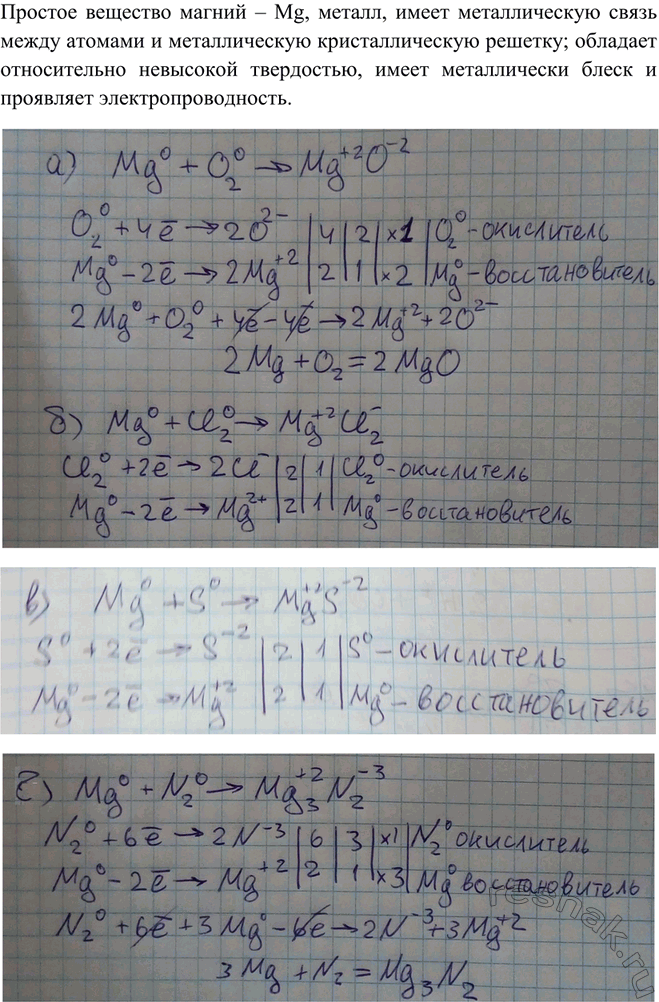 Простое вещество магний – Mg, металл, имеет металлическую связь
между атомами и металлическую кристаллическую решетку; обладает
относительно невысокой твердостью, имеет металлически блеск и
проявляет электропроводность.
а) Mg⁰ + O₂⁰ → Mg⁺²O⁻²
O₂⁰ + 4ē → 2O²⁻ | 4 | 2 | ×1 | O₂⁰ - окислитель
Mg⁰ - 2ē → 2Mg⁺² | 2 | 1 | ×2 | Mg⁰ - восстановитель
2Mg⁰ + O₂⁰ + 4ē - 4ē → 2Mg⁺² + 2O²⁻
2Mg + O₂ = 2MgO
б) Mg⁰ + Cl₂⁰ → Mg⁺²Cl₂⁻
Cl₂⁰ + 2ē → 2Cl⁻ | 2 | 1 | Cl₂⁰ - окислитель
Mg⁰ - 2ē → Mg²⁺ | 2 | 1 | Mg⁰ - восстановитель
в) Mg⁰ + S⁰ → Mg⁺²S⁻²
S⁰ + 2ē → S⁻² | 2 | 1 | S⁰ - окислитель
Mg⁰ - 2ē → Mg⁺² | 2 | 1 | Mg⁰ - восстановитель
г) Mg⁰ + N₂⁰ → Mg₃⁺²N₂⁻³
N₂⁰ + 6ē → 2N⁻³ | 6 | 3 | ×1 | N₂⁰ окислитель
Mg⁰ - 2ē → Mg⁺² | 2 | 1 | ×3 | Mg⁰ восстановитель
N₂⁰ + 6ē + 3Mg⁰ - 6ē → 2N⁻³ + 3Mg⁺²
3Mg + N₂ = Mg₃N₂
reshak.ru